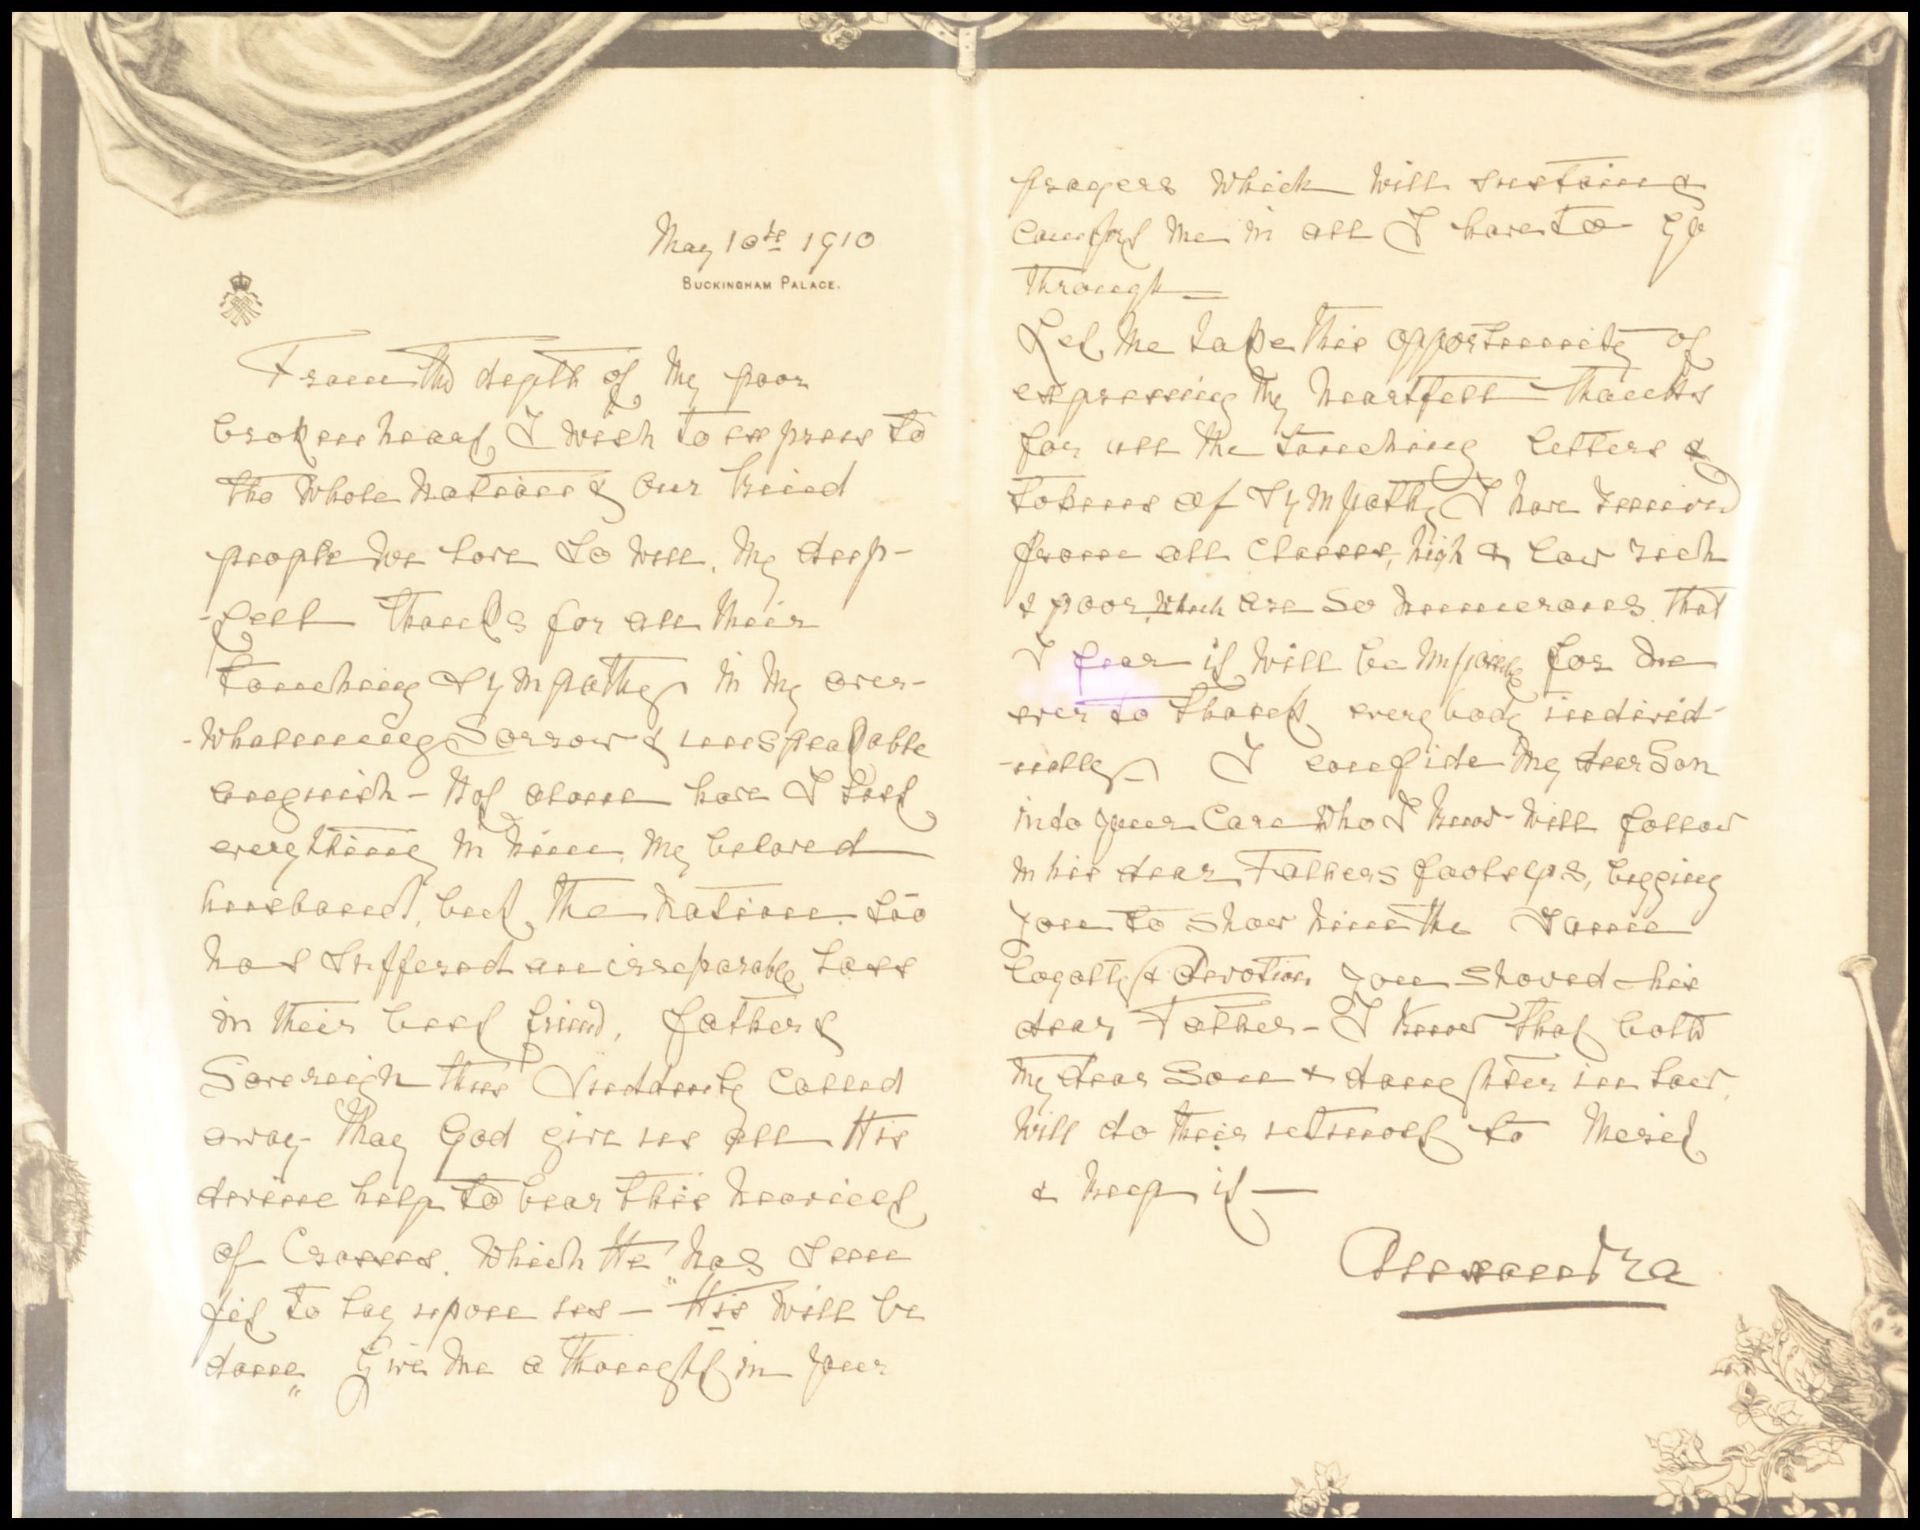 May 10th 1910
BUCKINGHAM PALACE.
From the depth of my poor
broken heart I wish to express to
the whole nation & our kind
people we love so well, my deep-
-felt thanks for all their
touching sympathy in my over-
-whelming Sorrow & unspeakable
anguish - Not alone have I lost
everything in him, my beloved
husband, but the nation too
has suffered an irreparable loss
in their best friend, father &
Sovereign thus suddenly called
away - May God give us all His
divine help to bear this heaviest
of Crosses. which He has seen
fit to lay upon us - "His will be
done" Give me a thought in your
prayers which will sustain &
comfort me in all I have to go
through -
Let me take this opportunity of
expressing my heartfelt thanks
for all the touching letters &
tokens of sympathy I have received
from all classes, high & low rich
& poor, which are so numerous that
I fear it will be impossible for me
ever to thank everybody individ-
-ually. I confide my dear Son
into your Care who I know will follow
in his dear Fathers footsteps, begging
you to show him the same
loyalty & devotion you showed his
dear Father - I know that both
my dear Son & daughter in law
will do their utmost to merit
& keep it -
Alexandra